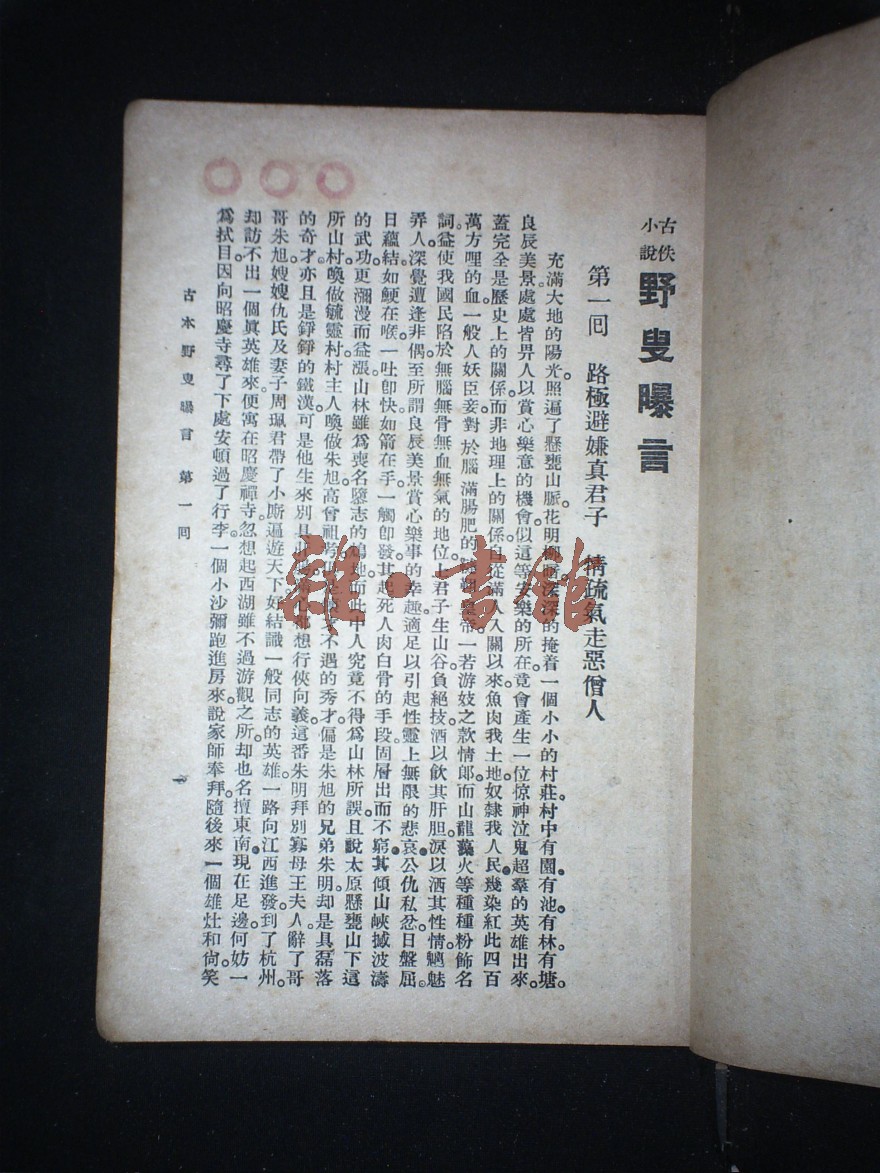 古佚小說
野叟曝言
第一回 路極避嫌真君子 情疏氣走惡僧人
充滿大地的陽光。照遍了懸甕山脈。花明深深的掩着一個小小的村莊。村中有園。有池。有林。有塘。
良辰美景。處處皆畀人以賞心樂意的機會。似這等安樂的所在。竟會產生一位惊神泣鬼超羣的英雄出來。
蓋完全是歷史上的關係。而非地理上的關係。自從滿人入關以來。魚肉我土地。奴隸我人民。幾染紅此四百
萬方哩的血。一般人妖臣妾。對於腦滿腸肥的皇帝。一若游妓之欵情郎。而山龍藻火等種種粉飾名
詞。益使我國民陷於無腦無骨無血無氣的地位。上君子生山谷。負絕技。酒以飲其肝胆。淚以洒其性情。魑魅
弄人。深覺遭逢非偶。至所謂良辰美景賞心樂事的幸趣。適足以引起性靈上無限的悲哀。公仇私忿。日盤屈。
日蘊結。如鯁在喉。一吐卽快。如箭在手。一觸卽發。其起死人肉白骨的手段。固層出而不窮。其傾山峽撼波濤
的武功。更瀰漫而益漲。山林雖爲喪名鑒志的地。而此中人究竟不得爲山林所誤。且說太原懸甕山下。這
所山村。喚做毓靈村。村主人喚做朱旭。高曾祖考不遇的秀才。偏是朱旭的兄弟朱明。却是具磊落
的奇才。亦且是錚錚的鐵漢。可是他生來別具都想行俠向義。這番朱明拜別寡母王夫人。辭了哥
哥朱旭嫂嫂仇氏及妻子周珮君。帶了小厮。遍遊天下。好結識一般同志的英雄。一路向江西進發。到了杭州。
却訪不出一個眞英雄來。便寓在昭慶禪寺。忽想起西湖雖不過游觀之所。却也名擅東南。現在足邊。何妨一
爲拭目。因向昭慶寺尋了下處。安頓過了行李。一個小沙彌跑進房來。說家師奉拜。隨後來一個雄壯和尙。笑
古本野叟曝言 第一回
一
雜·書館